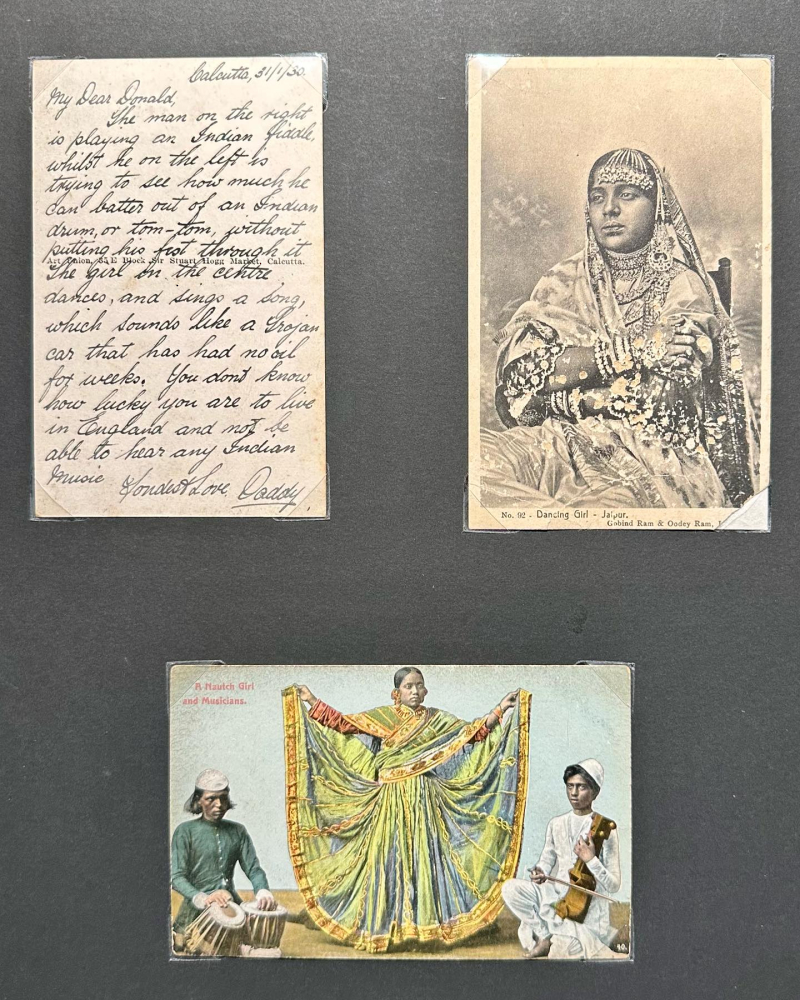 Calcutta, 31/1/30.
My Dear Donald,
The man on the right
is playing an Indian fiddle,
whilst he on the left is
trying to see how much he
can batter out of an Indian
drum, or tom-tom, without
putting his fist through it
Art Union, 55 E Block Sir Stuart Hogg Market, Calcutta.
The girl in the centre
dances, and sings a song,
which sounds like a Trojan
car that has had no oil
for weeks. You dont know
how lucky you are to live
in England and not be
able to hear any Indian
Music
Fondest Love, Daddy.
No. 92 - Dancing Girl - Jaipur.
Gobind Ram & Oodey Ram,
A Nautch Girl
and Musicians.
40.